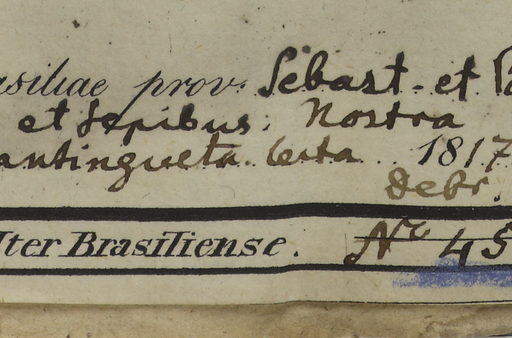 asiliae prov. Sebast. et P
et sepibus. Nostra
antingueta. 1817
Debr.
Iter Brasiliense. No 45